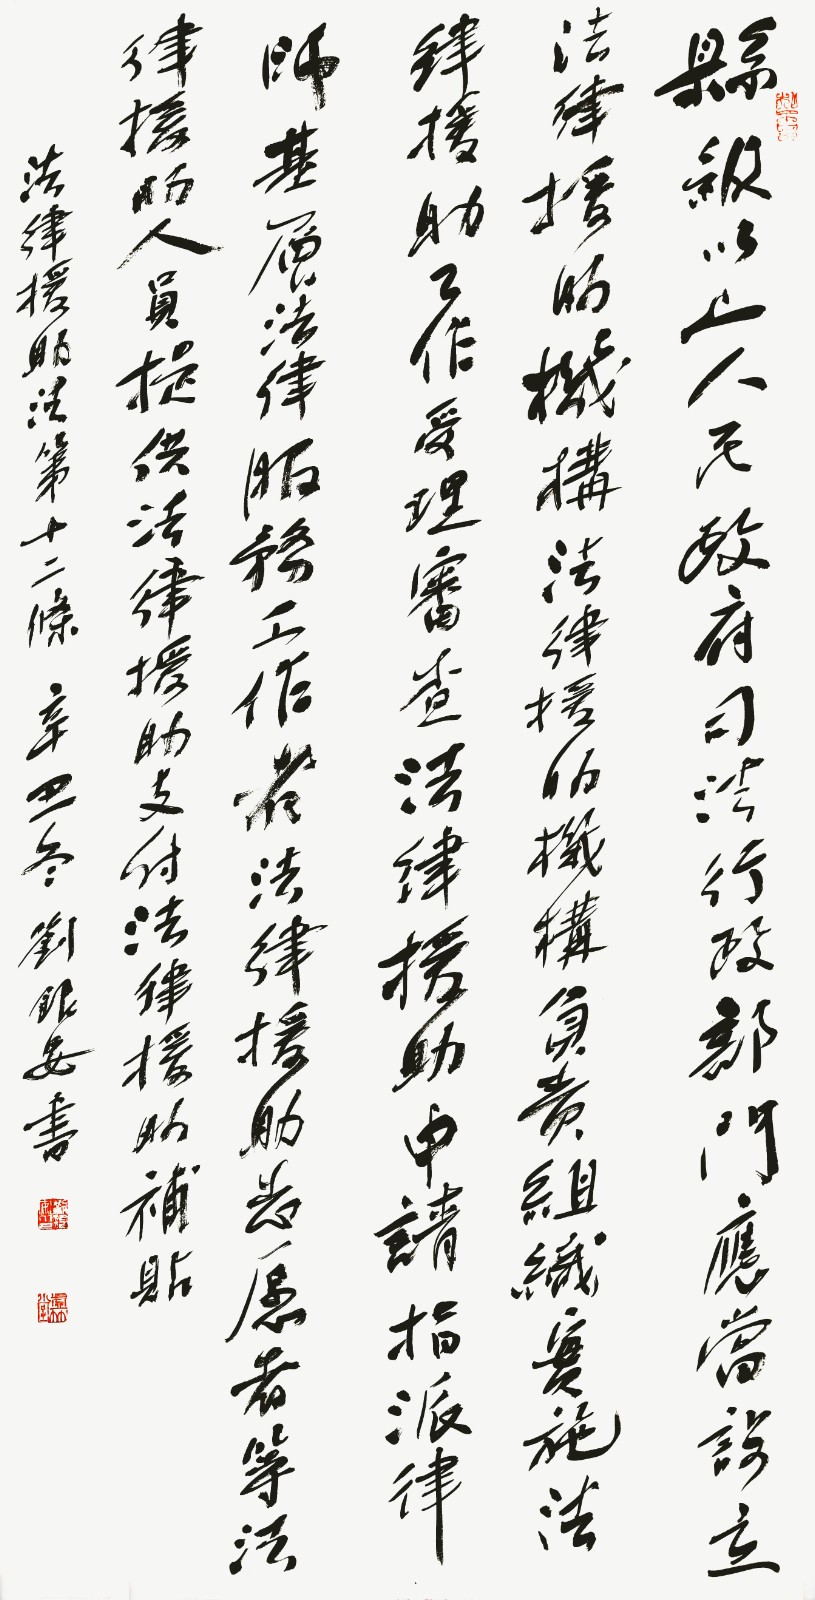 縣級以上人民政府司法行政部門應當設立
法律援助機構法律援助機構負責組織實施法
律援助工作受理審查法律援助申請指派律
師基層法律服務工作者法律援助志願者等法
律援助人員提供法律援助支付法律援助補貼
法律援助法第十二條 辛丑冬 劉銀安書